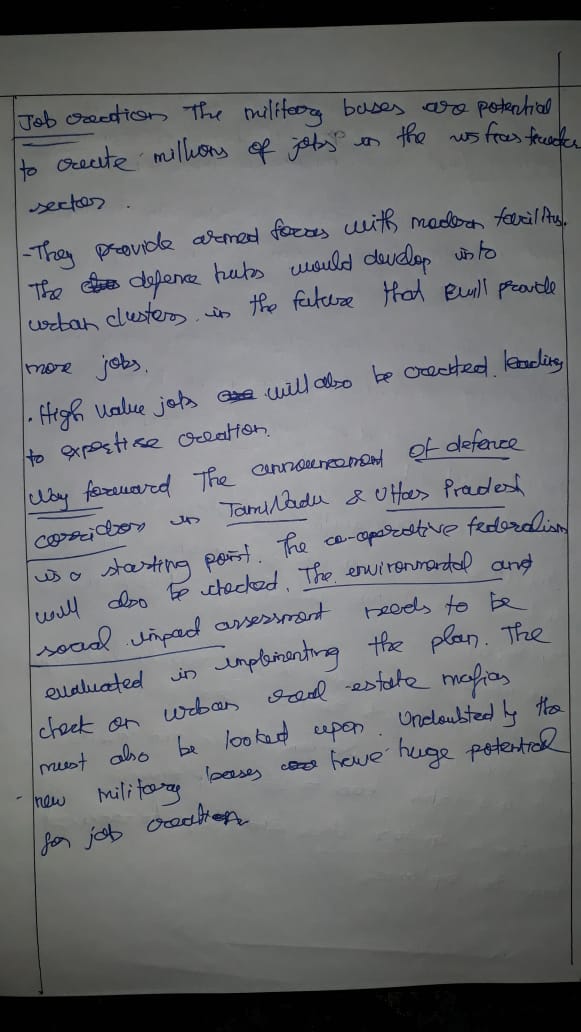 Job creation The military bases are potential
to create millions of jobs in the
sector.
-They provide armed forces with modern facility.
The defence hubs would develop into
urban clusters in the future that will provide
more jobs.
. High value jobs will also be created leading
to expertise creation.
Way forward The announcement of defence
corridors in Tamil Nadu & Uttar Pradesh
is a starting point. The co-operative federalism
will also be checked. The environmental and
social impact assessment needs to be
evaluated in implementing the plan. The
check on urban real-estate mafias
must also be looked upon. Undoubtedly the
- new military bases have huge potential
for job creation